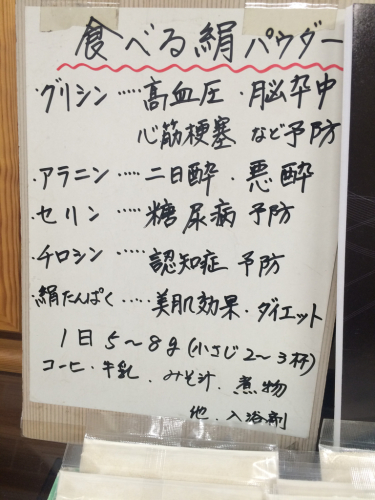 食べる絹パウダー
・グリシン・・・・・高血圧・脳卒中
心筋梗塞 など予防
・アラニン・・・・・二日酔・悪酔
・セリン・・・・・糖尿病予防
・チロシン・・・・・認知症 予防
・絹たんぱく・・・・・美肌効果・ダイエット
1日5〜8g(小さじ2〜3杯)
コーヒー・牛乳・みそ汁・煮物
他・入浴剤